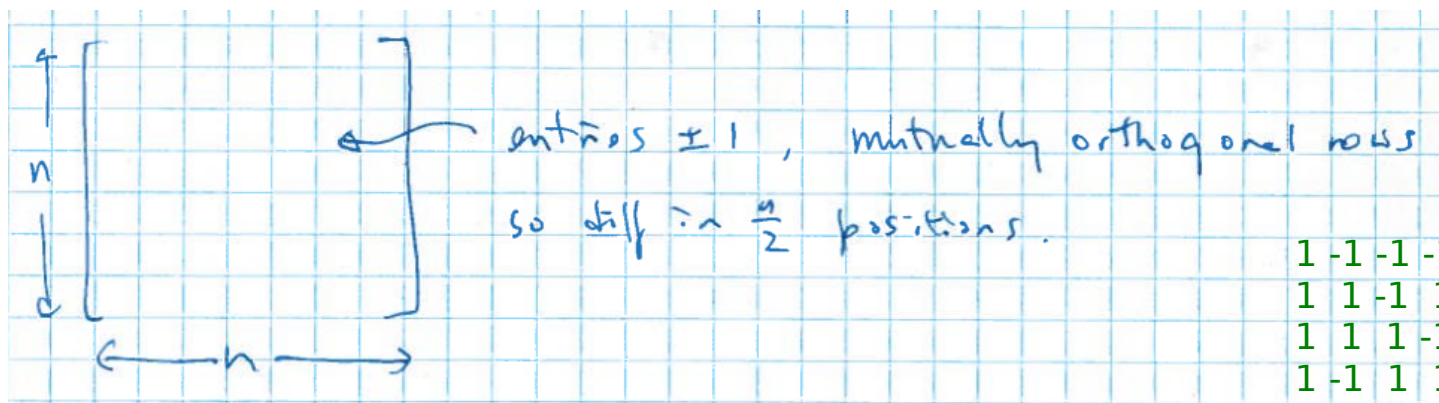 entries ±1, mutually orthogonal rows
n
so diff in n/2 positions.
1 -1 -1 -
1 1 -1 1
1 1 1 -1
1 -1 1 1
n